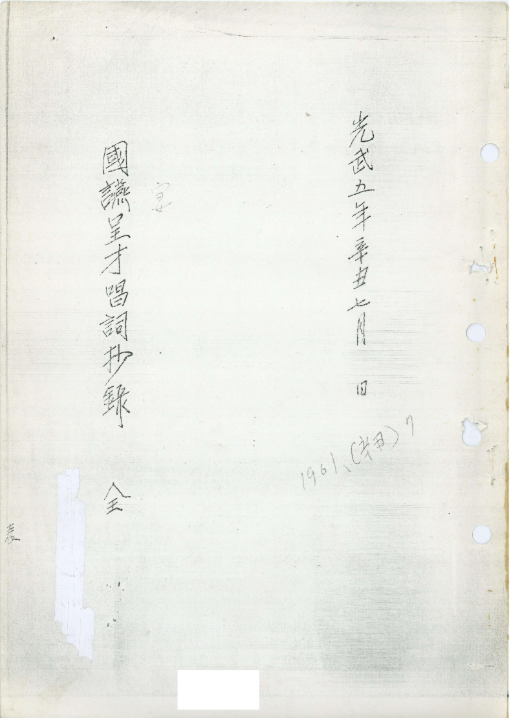 光武五年辛丑七月 日
國讌呈才唱詞抄錄 全
1961、(辛丑) 7
表